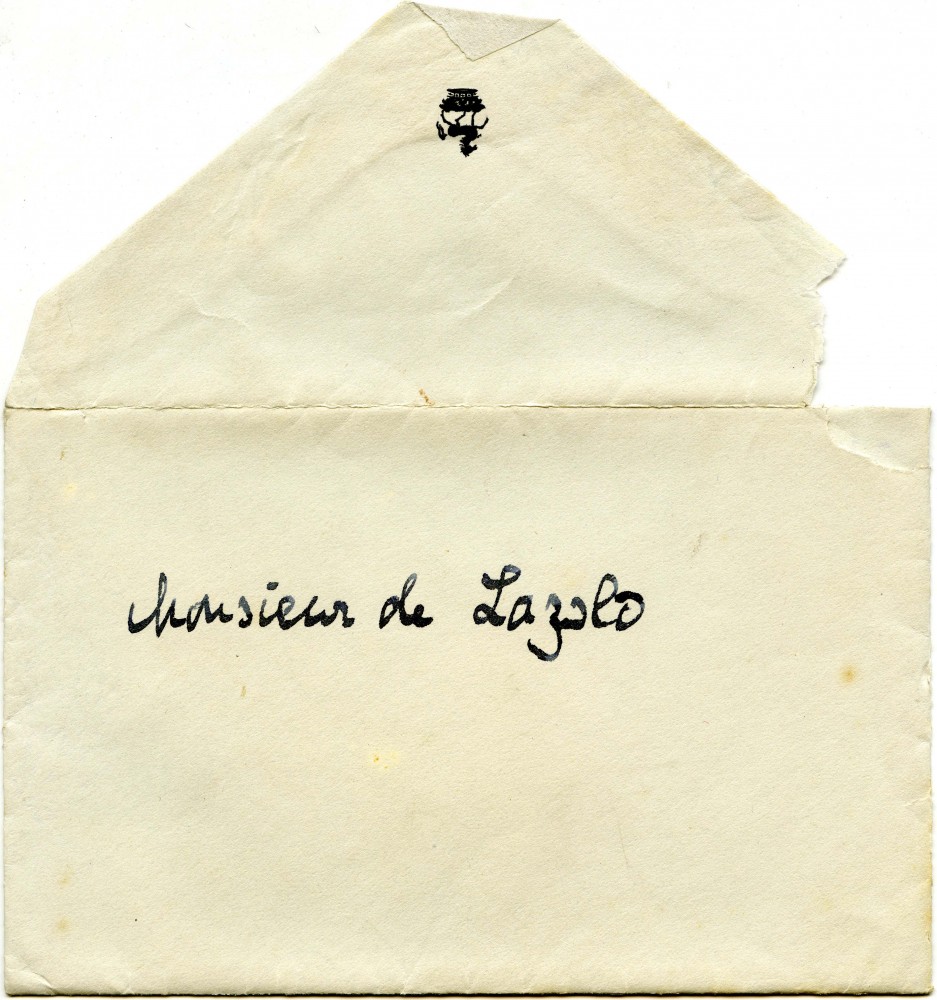 Monsieur de Lazslo